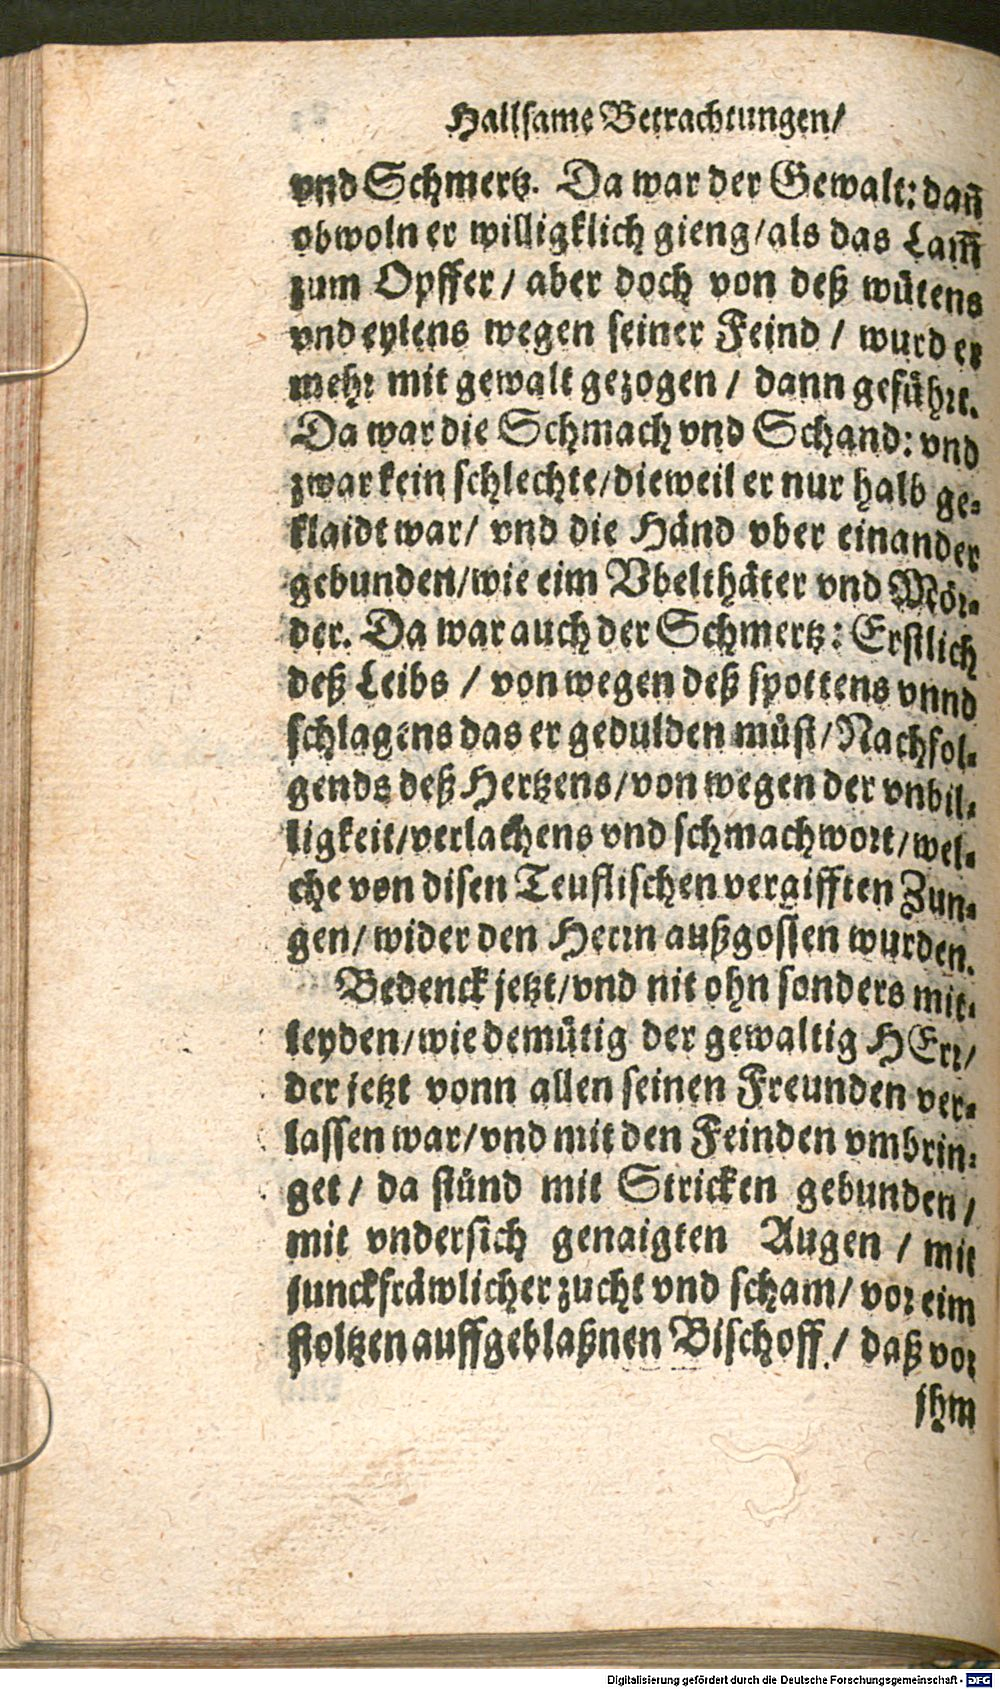 Hallsame Betrachtungen/
vnd Schmertz. Da war der Gewalt: dañ
obwoln er willigklich gieng/als das Lam̃
zum Opffer/ aber doch von deß wütens
vnd eylens wegen seiner Feind / wurd er
mehr mit gewalt gezogen / dann geführt.
Da war die Schmach vnd Schand: vnd
zwar kein schlechte/dieweil er nur halb ge-
klaidt war/ vnd die Händ vber einander
gebunden/wie eim Vbelthäter vnd Mör-
der. Da war auch der Schmertz: Erstlich
deß Leibs / von wegen deß spottens vnnd
schlagens das er gedulden müst/Nachfol-
gends deß Hertzens/von wegen der vnbil-
ligkeit/verlachens vnd schmachwort/wel-
che von disen Teuflischen vergifften Zun-
gen/ wider den Herrn außgossen wurden.
Bedenck jetzt/vnd nit ohn sonders mit-
leyden/wie demütig der gewaltig HErr/
der jetzt vonn allen seinen Freunden ver-
lassen war/vnd mit den Feinden vmbrin-
get/ da stünd mit Stricken gebunden/
mit vndersich genaigten Augen / mit
junckfräwlicher zucht vnd scham/ vor eim
stoltzen auffgeblaßnen Bischoff / daß vor
jhm
Digitalisierung gefördert durch die Deutsche Forschungsgemeinschaft - DFG